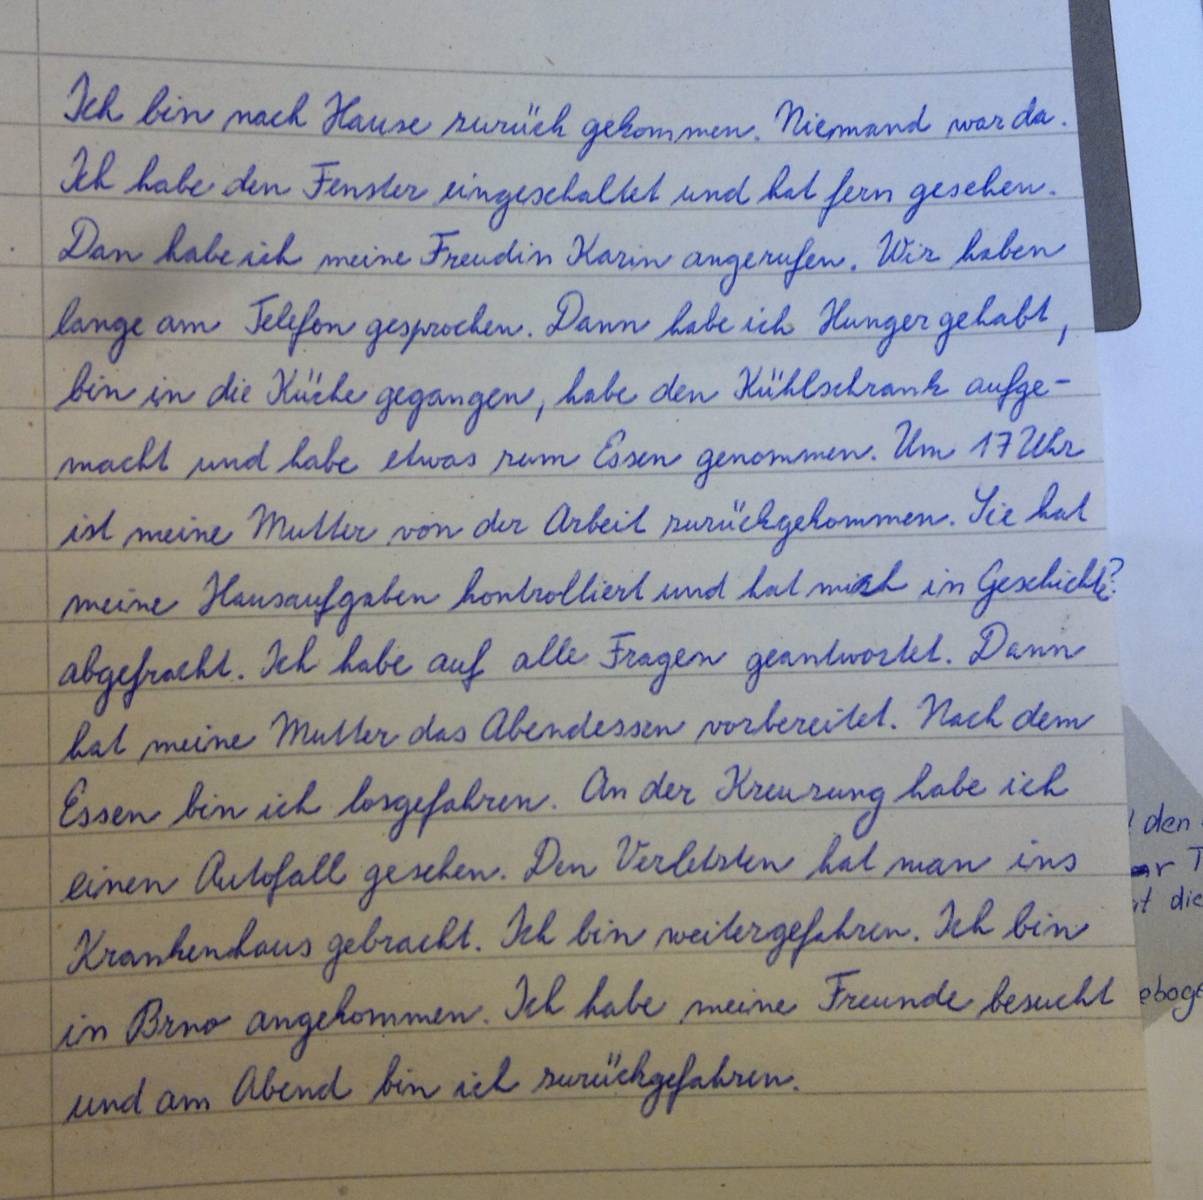 Ich bin nach Hause zurück gekommen. Niemand war da.
Ich habe den Fenster eingeschaltet und hat fern gesehen.
Dan habe ich meine Freudin Karin angerufen. Wir haben
lange am Telefon gesprochen. Dann habe ich Hunger gehabt,
bin in die Küche gegangen, habe den Kühlschrank aufge-
macht und habe etwas zum Essen genommen. Um 17 Uhr
ist meine Mutter von der Arbeit zurückgekommen. Sie hat
meine Hausaufgaben kontrolliert und hat mich in Geschichte?
abgefracht. Ich habe auf alle Fragen geantwortet. Dann
hat meine Mutter das Abendessen vorbereitet. Nach dem
Essen bin ich losgefahren. An der Kreuzung habe ich
einen Autofall gesehen. Den Verletzten hat man ins
Krankenhaus gebracht. Ich bin weitergefahren. Ich bin
in Brno angekommen. Ich habe meine Freunde besucht
und am Abend bin ich zurückgefahren.
den
die